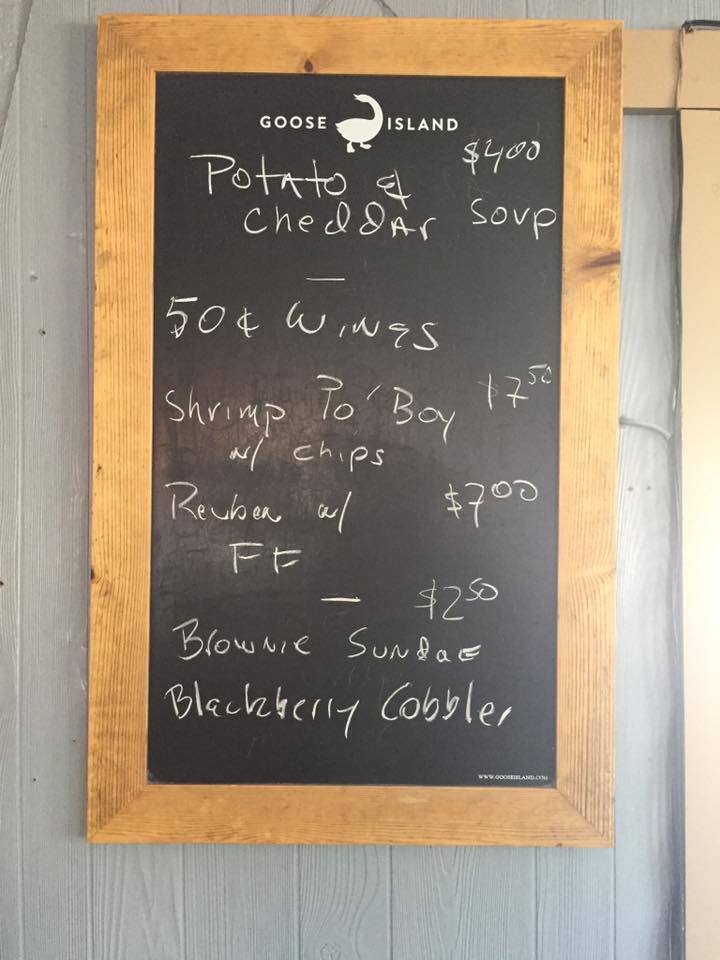 GOOSE ISLAND
Potato & $4.00
Cheddar Soup
50¢ Wings
Shrimp Po' Boy $7.50
w/ chips
Reuben w/ $7.00
FF
$2.50
Brownie Sundae
Blackberry Cobbler
WWW.GOOSEISLAND.COM